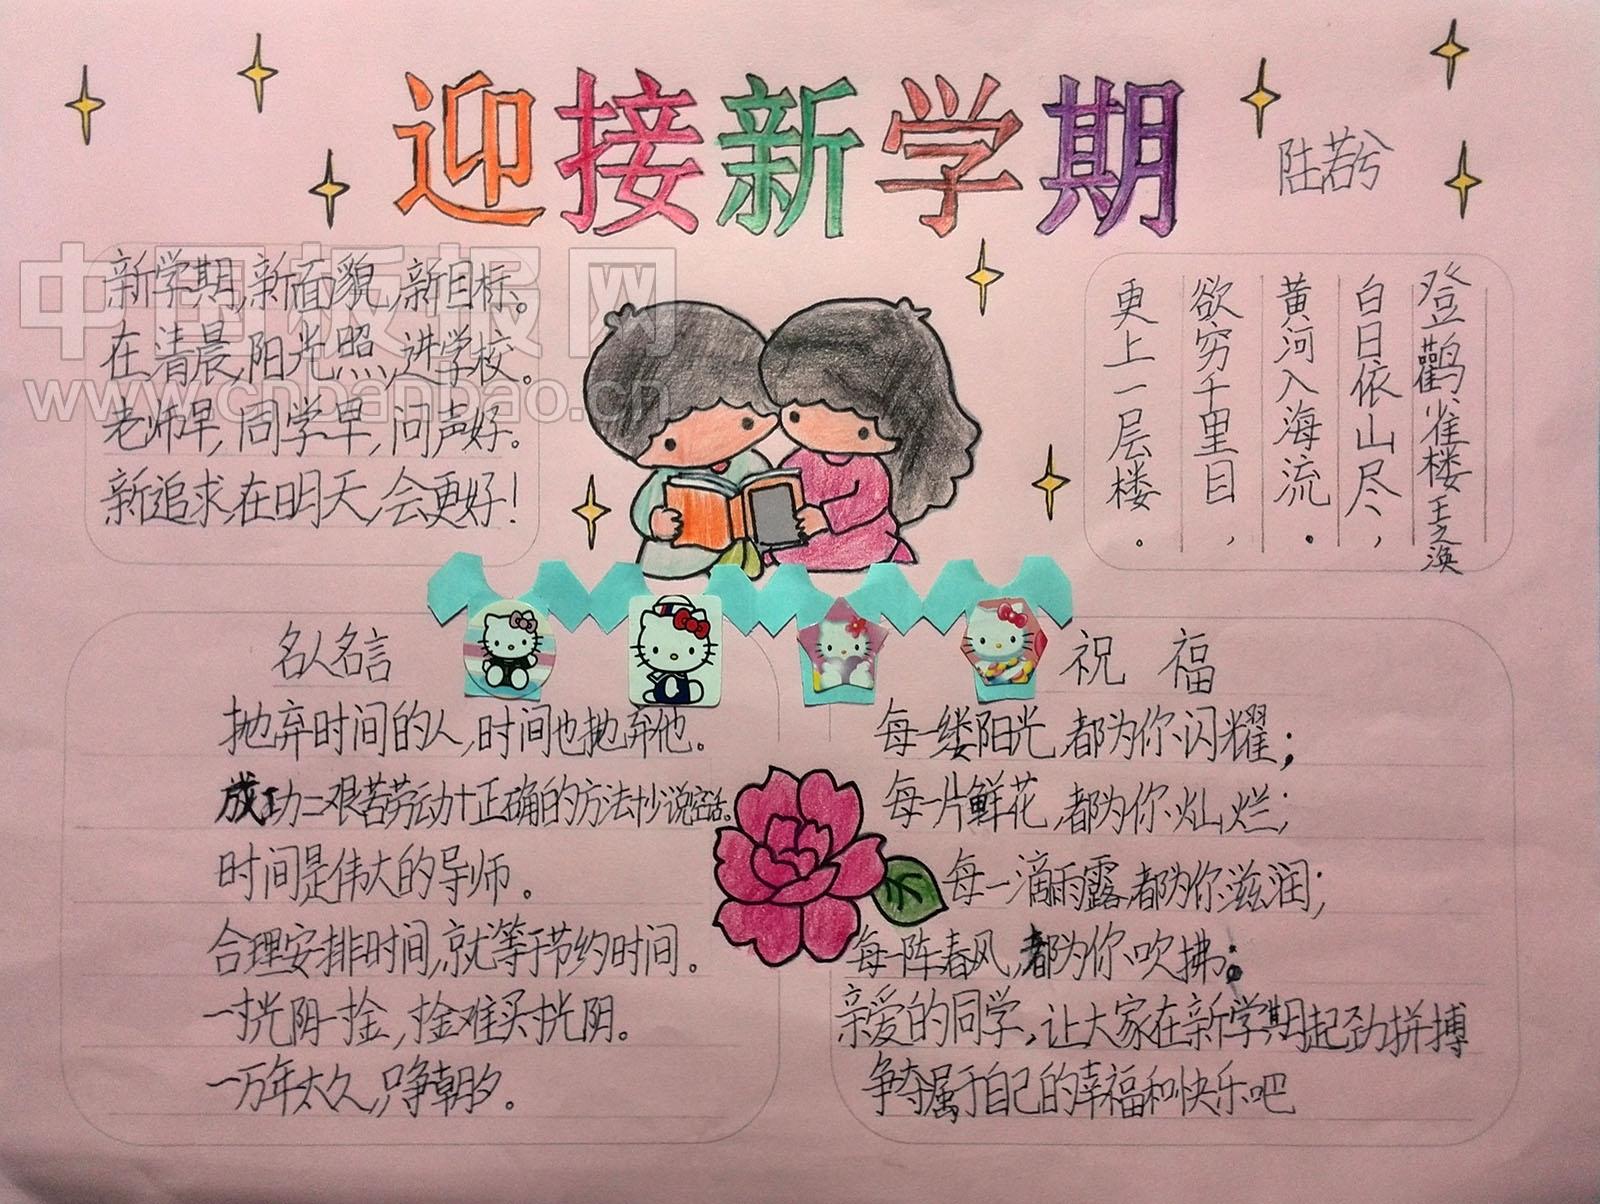 迎接新学期
陆若兮
中国板报网
www.cnbanbao.cn
新学期,新面貌,新目标。
在清晨,阳光照,进学校。
老师早,同学早,问声好。
新追求,在明天,会更好!
登鹳雀楼 王之涣
白日依山尽,
黄河入海流.
欲穷千里目,
更上一层楼.
名人名言
抛弃时间的人,时间也抛弃他。
成功=艰苦劳动+正确的方法+少说空话。
时间是伟大的导师。
合理安排时间,就等于节约时间。
一寸光阴一寸金,寸金难买寸光阴。
一万年太久,只争朝夕。
祝 福
每一缕阳光,都为你闪耀;
每一片鲜花,都为你灿烂;
每一滴雨露,都为你滋润;
每一阵春风,都为你吹拂;
亲爱的同学,让大家在新学期起劲拼搏
争夺属于自己的幸福和快乐吧